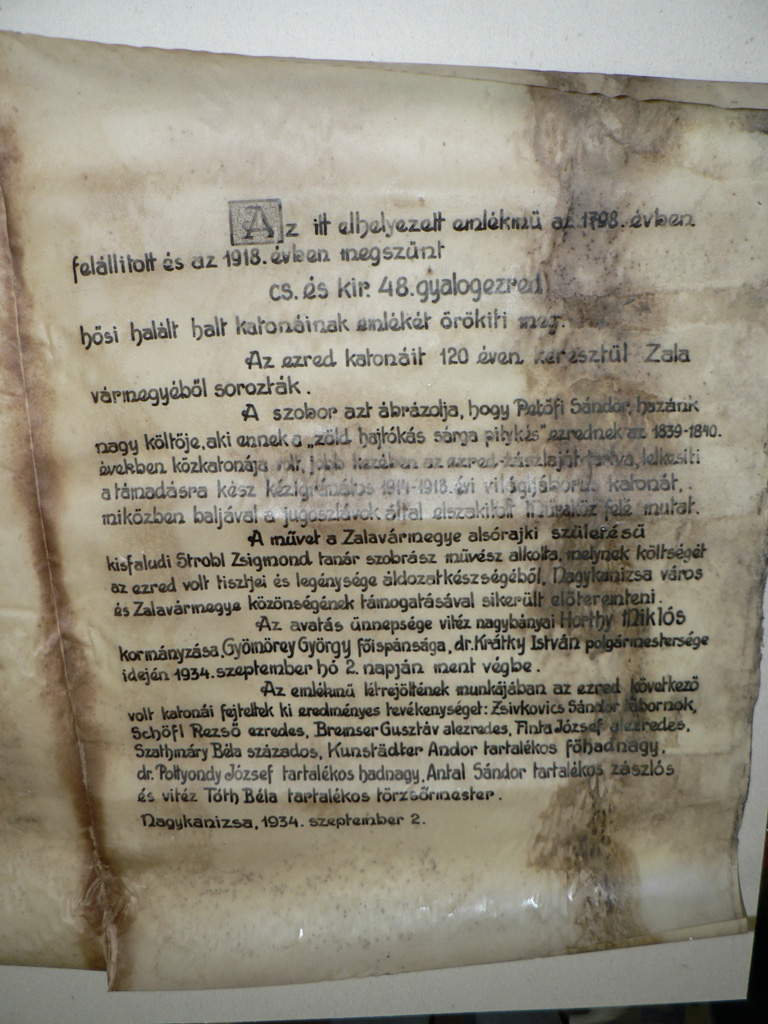 Az itt elhelyezett emlékmű az 1798. évben
felállitott és az 1918. évben megszünt
cs. és kir. 48. gyalogezred
hősi halált halt katonáinak emlékét örökiti meg.
Az ezred katonáit 120 éven keresztül Zala
vármegyéből sorozták.
A szobor azt ábrázolja, hogy Petőfi Sándor, hazánk
nagy költője, aki ennek a „zöld hajtókás sárga pitykés" ezrednek az 1839-1840.
években közkatonája volt, jobb kezében az ezred-zászlaját tartva, lelkesiti
a támadásra kész kézigránátos 1914-1918. évi világháborus katonát,
miközben baljával a jugoszlávok által elszakitott Muraköz felé mutat.
A művet a Zalavármegye alsórajki születésű
kisfaludi Strobl Zsigmond tanár szobrász művész alkotta, melynek költségét
az ezred volt tisztjei és legénysége áldozatkészségéből, Nagykanizsa város
és Zalavármegye közönségének támogatásával sikerült előteremteni.
Az avatás ünnepsége vitéz nagybányai Horthy Miklós
kormányzása, Gyömörey György főispánsága, dr. Krátky István polgármestersége
idején 1934. szeptember hó 2. napján ment végbe.
Az emlékmű létrejöttének munkájában az ezred következő
volt katonái fejtettek ki eredményes tevékenységet: Zsivkovics Sándor tábornok,
Schöfl Rezső ezredes, Bremser Gusztáv alezredes, Finta József alezredes,
Szathmáry Béla százados, Kunstädter Andor tartalékos főhadnagy,
dr. Pottyondy József tartalékos hadnagy, Antal Sándor tartalékos zászlós
és vitéz Tóth Béla tartalékos törzsőrmester.
Nagykanizsa, 1934. szeptember 2.